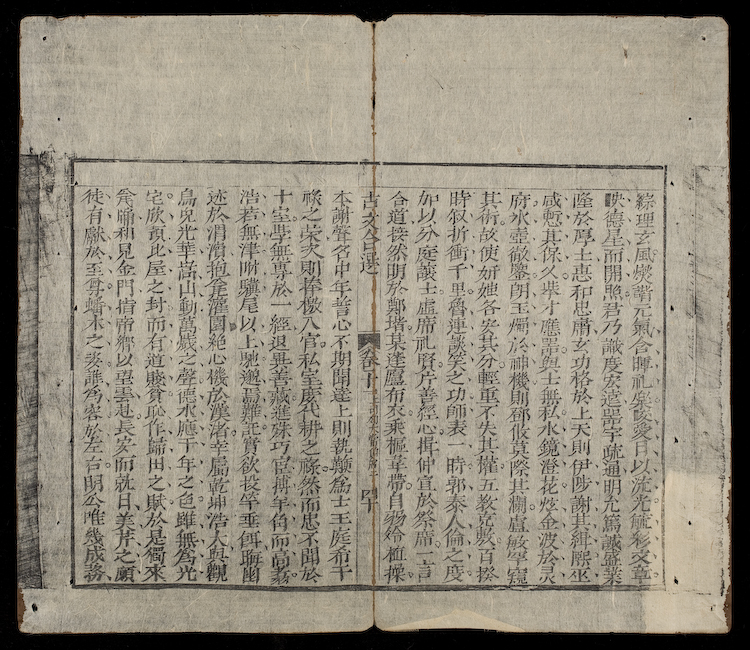 綜理玄風燮諧元氣含暉礼愛日以流光毓彩文章
映德星而開照君乃識度宏遠器宇疏通明允篤誠盡業
隆於學士惠和忠肅玄功格於上天則伊陟謝其緝熙巫
咸慙其保乂柴才應器與士無私水鏡澄花炫金波於靈
府水壺徹鑒朗玉燭於神機則鄧攸莫際其瀾盧敏罕窺
其術故使妍媸各安其分輕重不失其權五教克敷百揆
時叙折衝千里魯連談笑之功師表一時郭泰人倫之度
加以分庭讓士虛席礼賢片善經心揖仲宣於祭席一言
合道接然明於鄭堦某蓬廬布衣桑樞韋帶自弱冷植操
古文合選 卷十 四十
本謝聲名中年誓心不期聞達上則執鞭為士王庭希干
祿之榮次則捧檄入官私室慶代耕之祿然而忠不聞於
十室學無專於一經退異善藏進殊巧宦摶羊角而高翥
浩若無津附驥尾以上馳邈焉難託實欲投竿垂餌晦幽
迹於渭濱抱瓮灌園絕心機於漢渚幸屬乾坤浩大與觀
鳥兒光華嵩山動萬歲之聲德水應千年之色雖無為光
宅欣預比屋之封而有道賤貧恥作歸田之賦於是獨來
和見金門指帝鄉以望雲赴長安而就日美芹之願
徒有獻於至尊蟠木之姿誰為容於左右明公唯幾成務